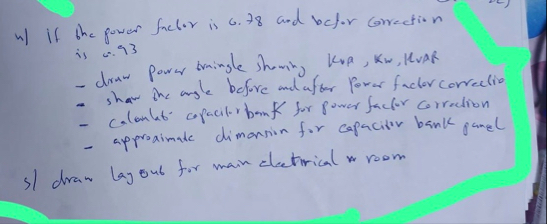 4/ if the power factor is 0.78 and befor correction
is 0.93
- draw power traingle showing KVA, KW, KVAR
- show the angle before and after Power factor correctio
- calculate capacitor bank for power factor correction
- approximate dimension for capacitor bank panel
5/ draw layout for main electrical room